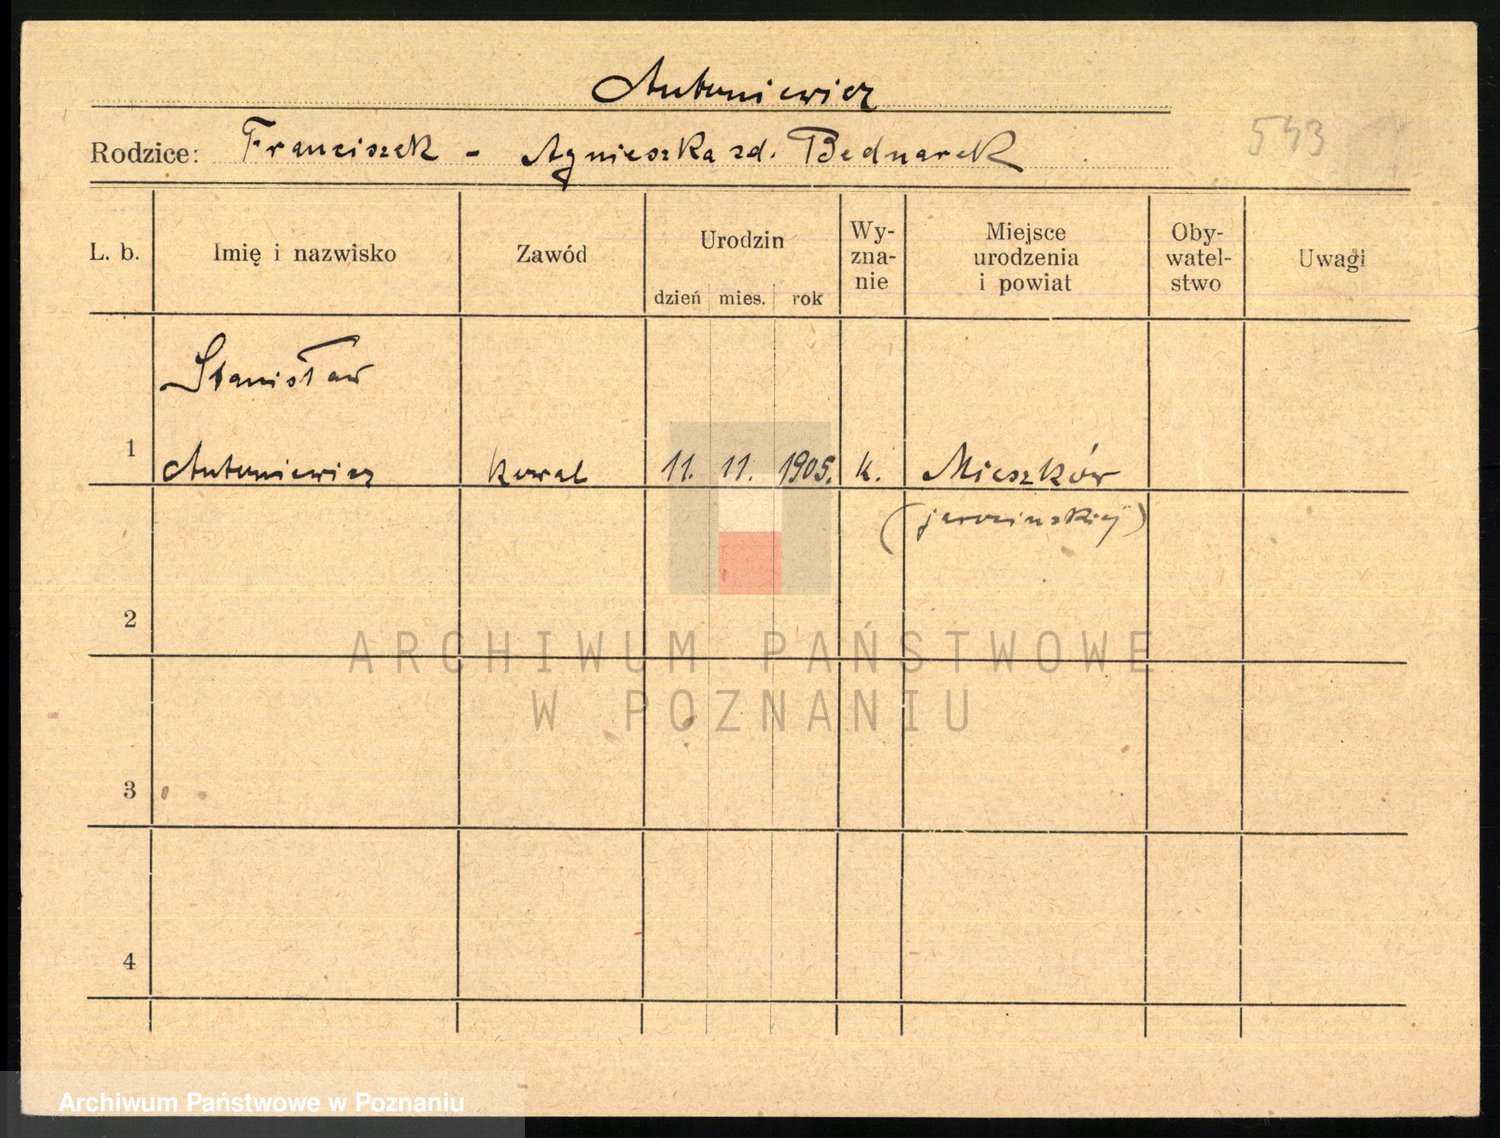 Antoniewicz
Rodzice: Franciszek - Agnieszka zd. Bednarek
543
L. b.
Imię i nazwisko
Zawód
Urodzin
dzień mies. rok
Wy-
zna-
nie
Miejsce
urodzenia
i powiat
Oby-
watel-
stwo
Uwagi
Stanisław
1 Antoniewicz kowal 11. 11. 1905. k. Mieszków
(jarocinskiej)
2
ARCHIWUM PAŃSTWOWE
W POZNANIU
3
4
Archiwum Państwowe w Poznaniu